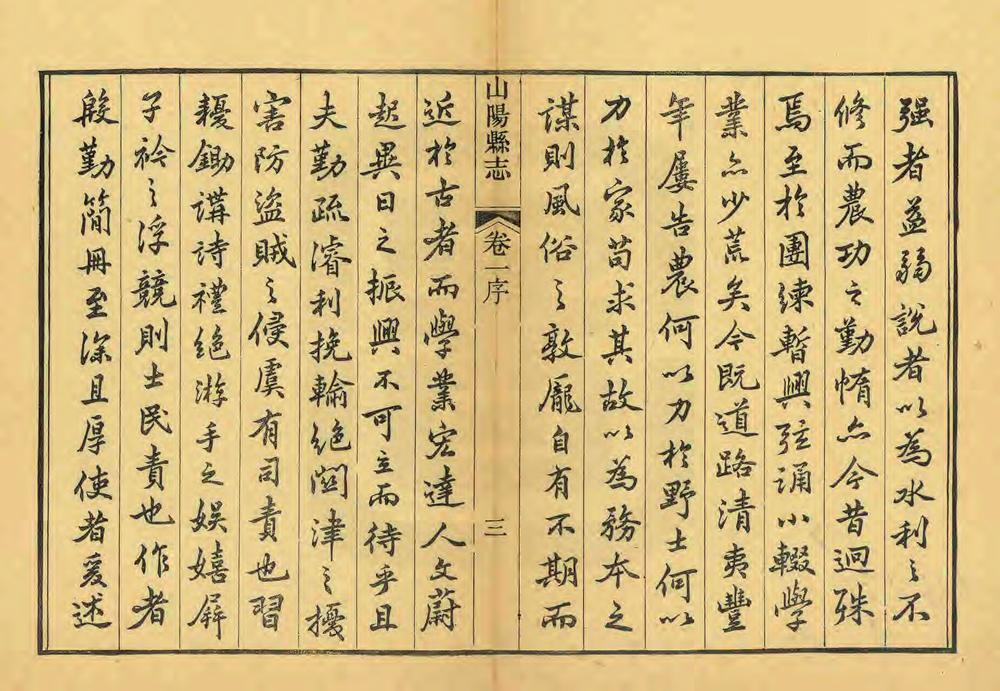 强者益弱說者以為水利之不
修而農功之勤惰亦今昔迥殊
焉至於團練暫興弦誦小輟學
業亦少荒矣今既道路清夷豐
年屢告農何以力於野士何以
力於家苟求其故以為務本之
謀則風俗之敦龐自有不期而
山陽縣志 卷一序 三
近於古者而學業宏達人文蔚
起異日之振興不可立而待乎且
夫勤疏濬利挽輸絕關津之擾
害防盜賊之侵虞有司責也習
耰鋤講詩禮絕游手之娛嬉屏
子衿之浮競則士民責也作者
殷勤簡冊至深且厚使者爰述